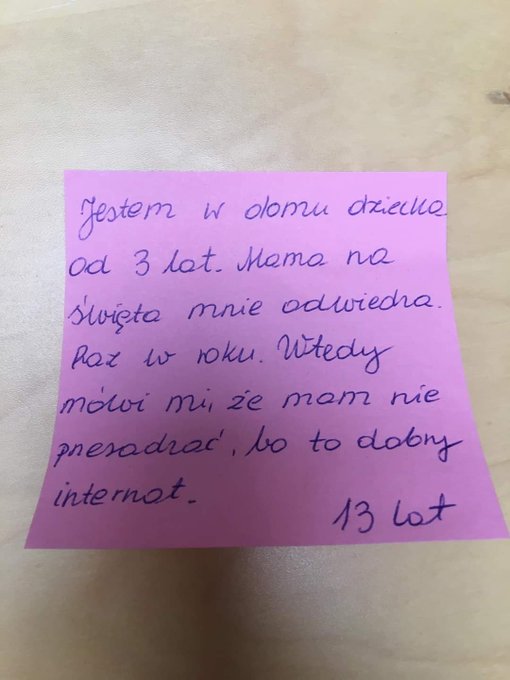 Jestem w domu dziecka
od 3 lat. Mama na
święta mnie odwiedza.
Raz w roku. Wtedy
mówi mi, że mam nie
przesadzać, bo to dobry
internat.
13 lat